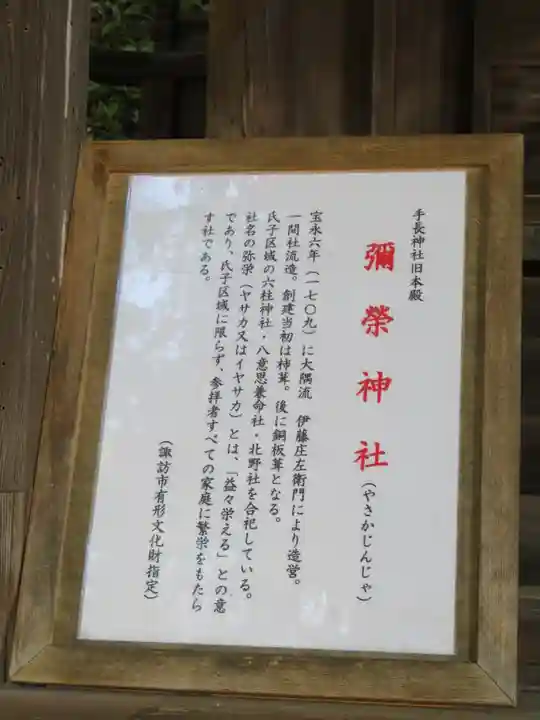 手長神社旧本殿
彌榮神社(やさかじんじゃ)
宝永六年(一七〇九)に大隅流 伊藤庄左衛門により造営。
一間社流造。創建当初は杮葺。後に銅板葺となる。
氏子区域の六柱神社・八意思兼命社・北野社を合祀している。
社名の弥栄(ヤサカ又はイヤサカ)とは、「益々栄える」との意
であり、氏子区域に限らず、参拝者すべての家庭に繁栄をもたら
す社である。
(諏訪市有形文化財指定)